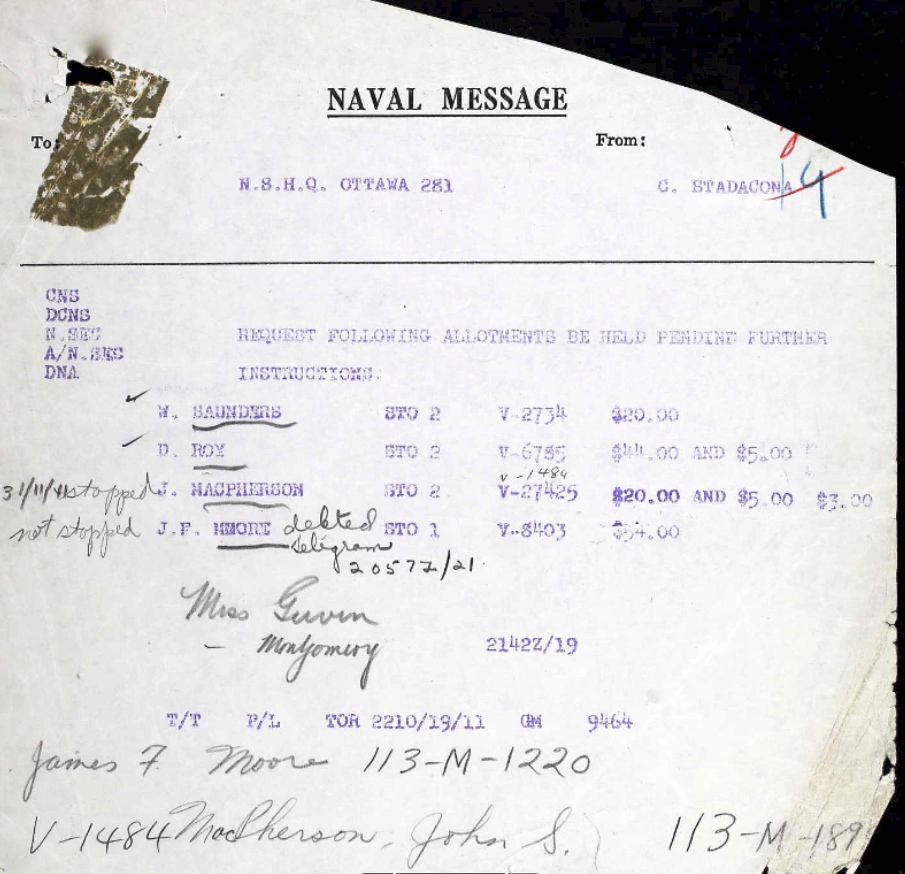 NAVAL MESSAGE
To: From:
N.S.H.Q. OTTAWA 281 C. STADACONA 4
CNS
DCNS
N.SEC REQUEST FOLLOWING ALLOTMENTS BE HELD PENDING FURTHER
A/N.SEC
DNA INSTRUCTIONS:
W. SAUNDERS STO 2 V-2734 $20.00
D. ROY STO 2 V-6785 $44.00 AND $5.00
V-1484
31/11/41 stopped J. MACPHERSON STO 2 V-27425 $20.00 AND $5.00 $3.00
not stopped J.F. MMORE deleted STO 1 V-8403 $54.00
telegram
2057Z/21.
Miss
- Montgomery 2142Z/19
T/T P/L TOR 2210/19/11 GM 9464
James F. Moore 113-M-1220
V-1484 MacPherson, John S. 113-M-189